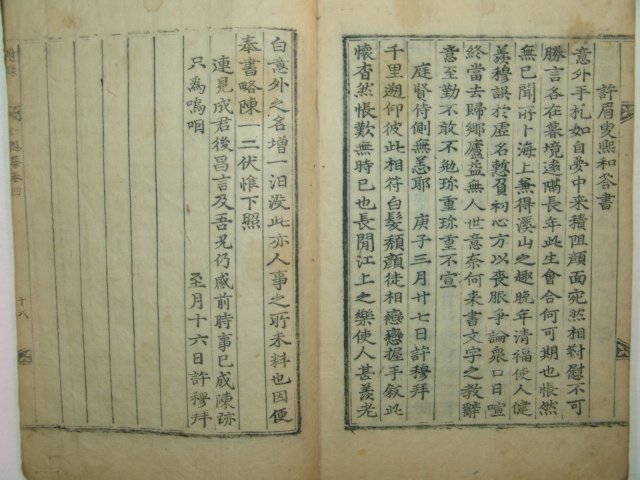 許眉叟熙和答書
意外手札如自夢中來積阻顔面宛然相對慰不可
勝言各在暮境遠隔長年此生會合何可期也悵然
無已聞所卜海上無得溪山之趣晩年清福使人健
羨穆誤於虛名慙負初心方以喪服爭論衆口日喧
終當去歸鄉廬益無人世意奈何来書文字之教辭
意至勤不敢不勉珎重珎重不宣
庭賢侍側無恙耶 庚子三月廿七日許穆拜
千里遡仰彼此相符白髮頽顔徒相戀戀握手敘此
懷杳然悵歎無時已也長閒江上之樂使人甚羨光
白意外之名增一汨沒此亦人事之所未料也因便
奉書略陳一二伏惟下照
連見成君後昌言及吾兄仍感前時事已成陳跡
只為嗚咽 至月十六日許穆拜
十八